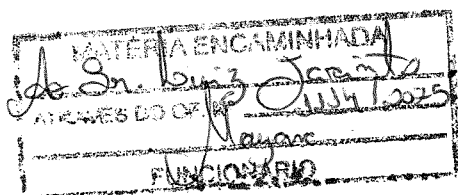 MATÉRIA ENCAMINHADA
Ao Sr. Luiz Jacinto
ATRAVÉS DO OF. Nº 1114/2025
Nayane
FUNCIONÁRIO